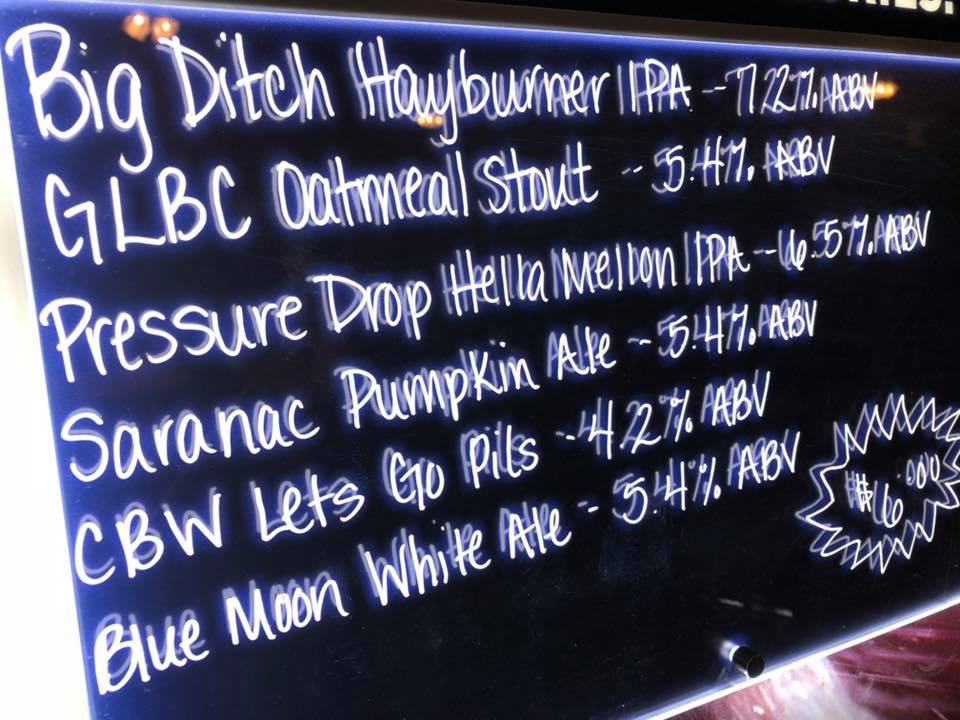 Big Ditch Hayburner IPA -- 7.2% ABV
GLBC Oatmeal Stout -- 5.4% ABV
Pressure Drop Hella Mellon IPA -- 6.5% ABV
Saranac Pumpkin Ale -- 5.4% ABV
CBW Lets Go Pils -- 4.2% ABV
Blue Moon White Ale -- 5.4% ABV
$6.00